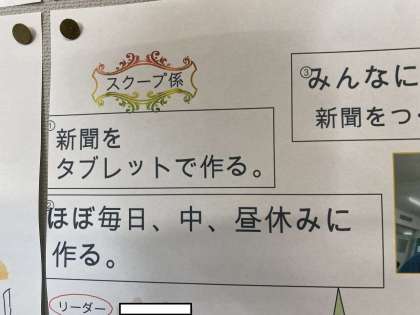 スクープ係
①
新聞を
タブレットで作る。
②
ほぼ毎日、中、昼休みに
作る。
③
みんなに
新聞をつ
リーダー